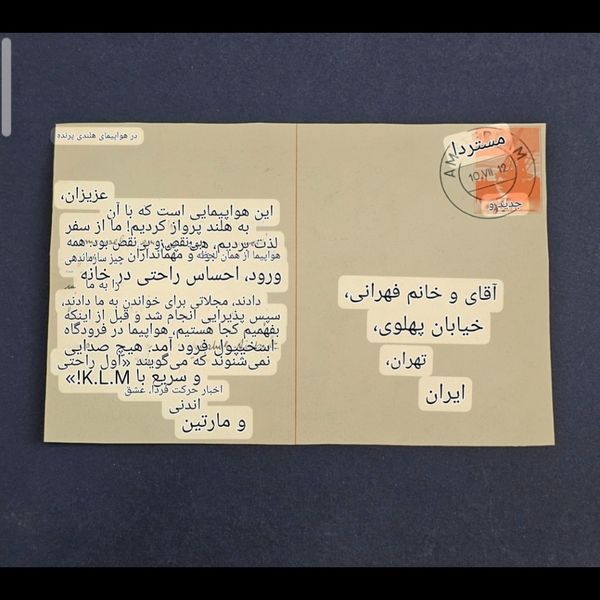 در هواپیمای هلندی پرنده
عزیزان،
این هواپیمایی است که با آن
به هلند پرواز کردیم! ما از سفر
لذت بردیم، بی نقص و بی نقص بود. همه
چیز سازماندهی
هواپیما از همان لحظه و مهمانداران
ورود، احساس راحتی در خانه
را به ما
دادند، مجلاتی برای خواندن به ما دادند،
سپس پذیرایی انجام شد و قبل از اینکه
بفهمیم کجا هستیم، هواپیما در فرودگاه
اسخیپول فرود آمد. هیچ صدایی
نمی‌شنوند که می‌گویند «اول راحتی
و سریع با K.L.M!»
اخبار حرکت فردا. عشق
اندنی
و مارتین
مستردا
AM M
10.VII.12
جدیدرو،
آقای و خانم فهرانی،
خیابان پهلوی،
تهران،
ایران